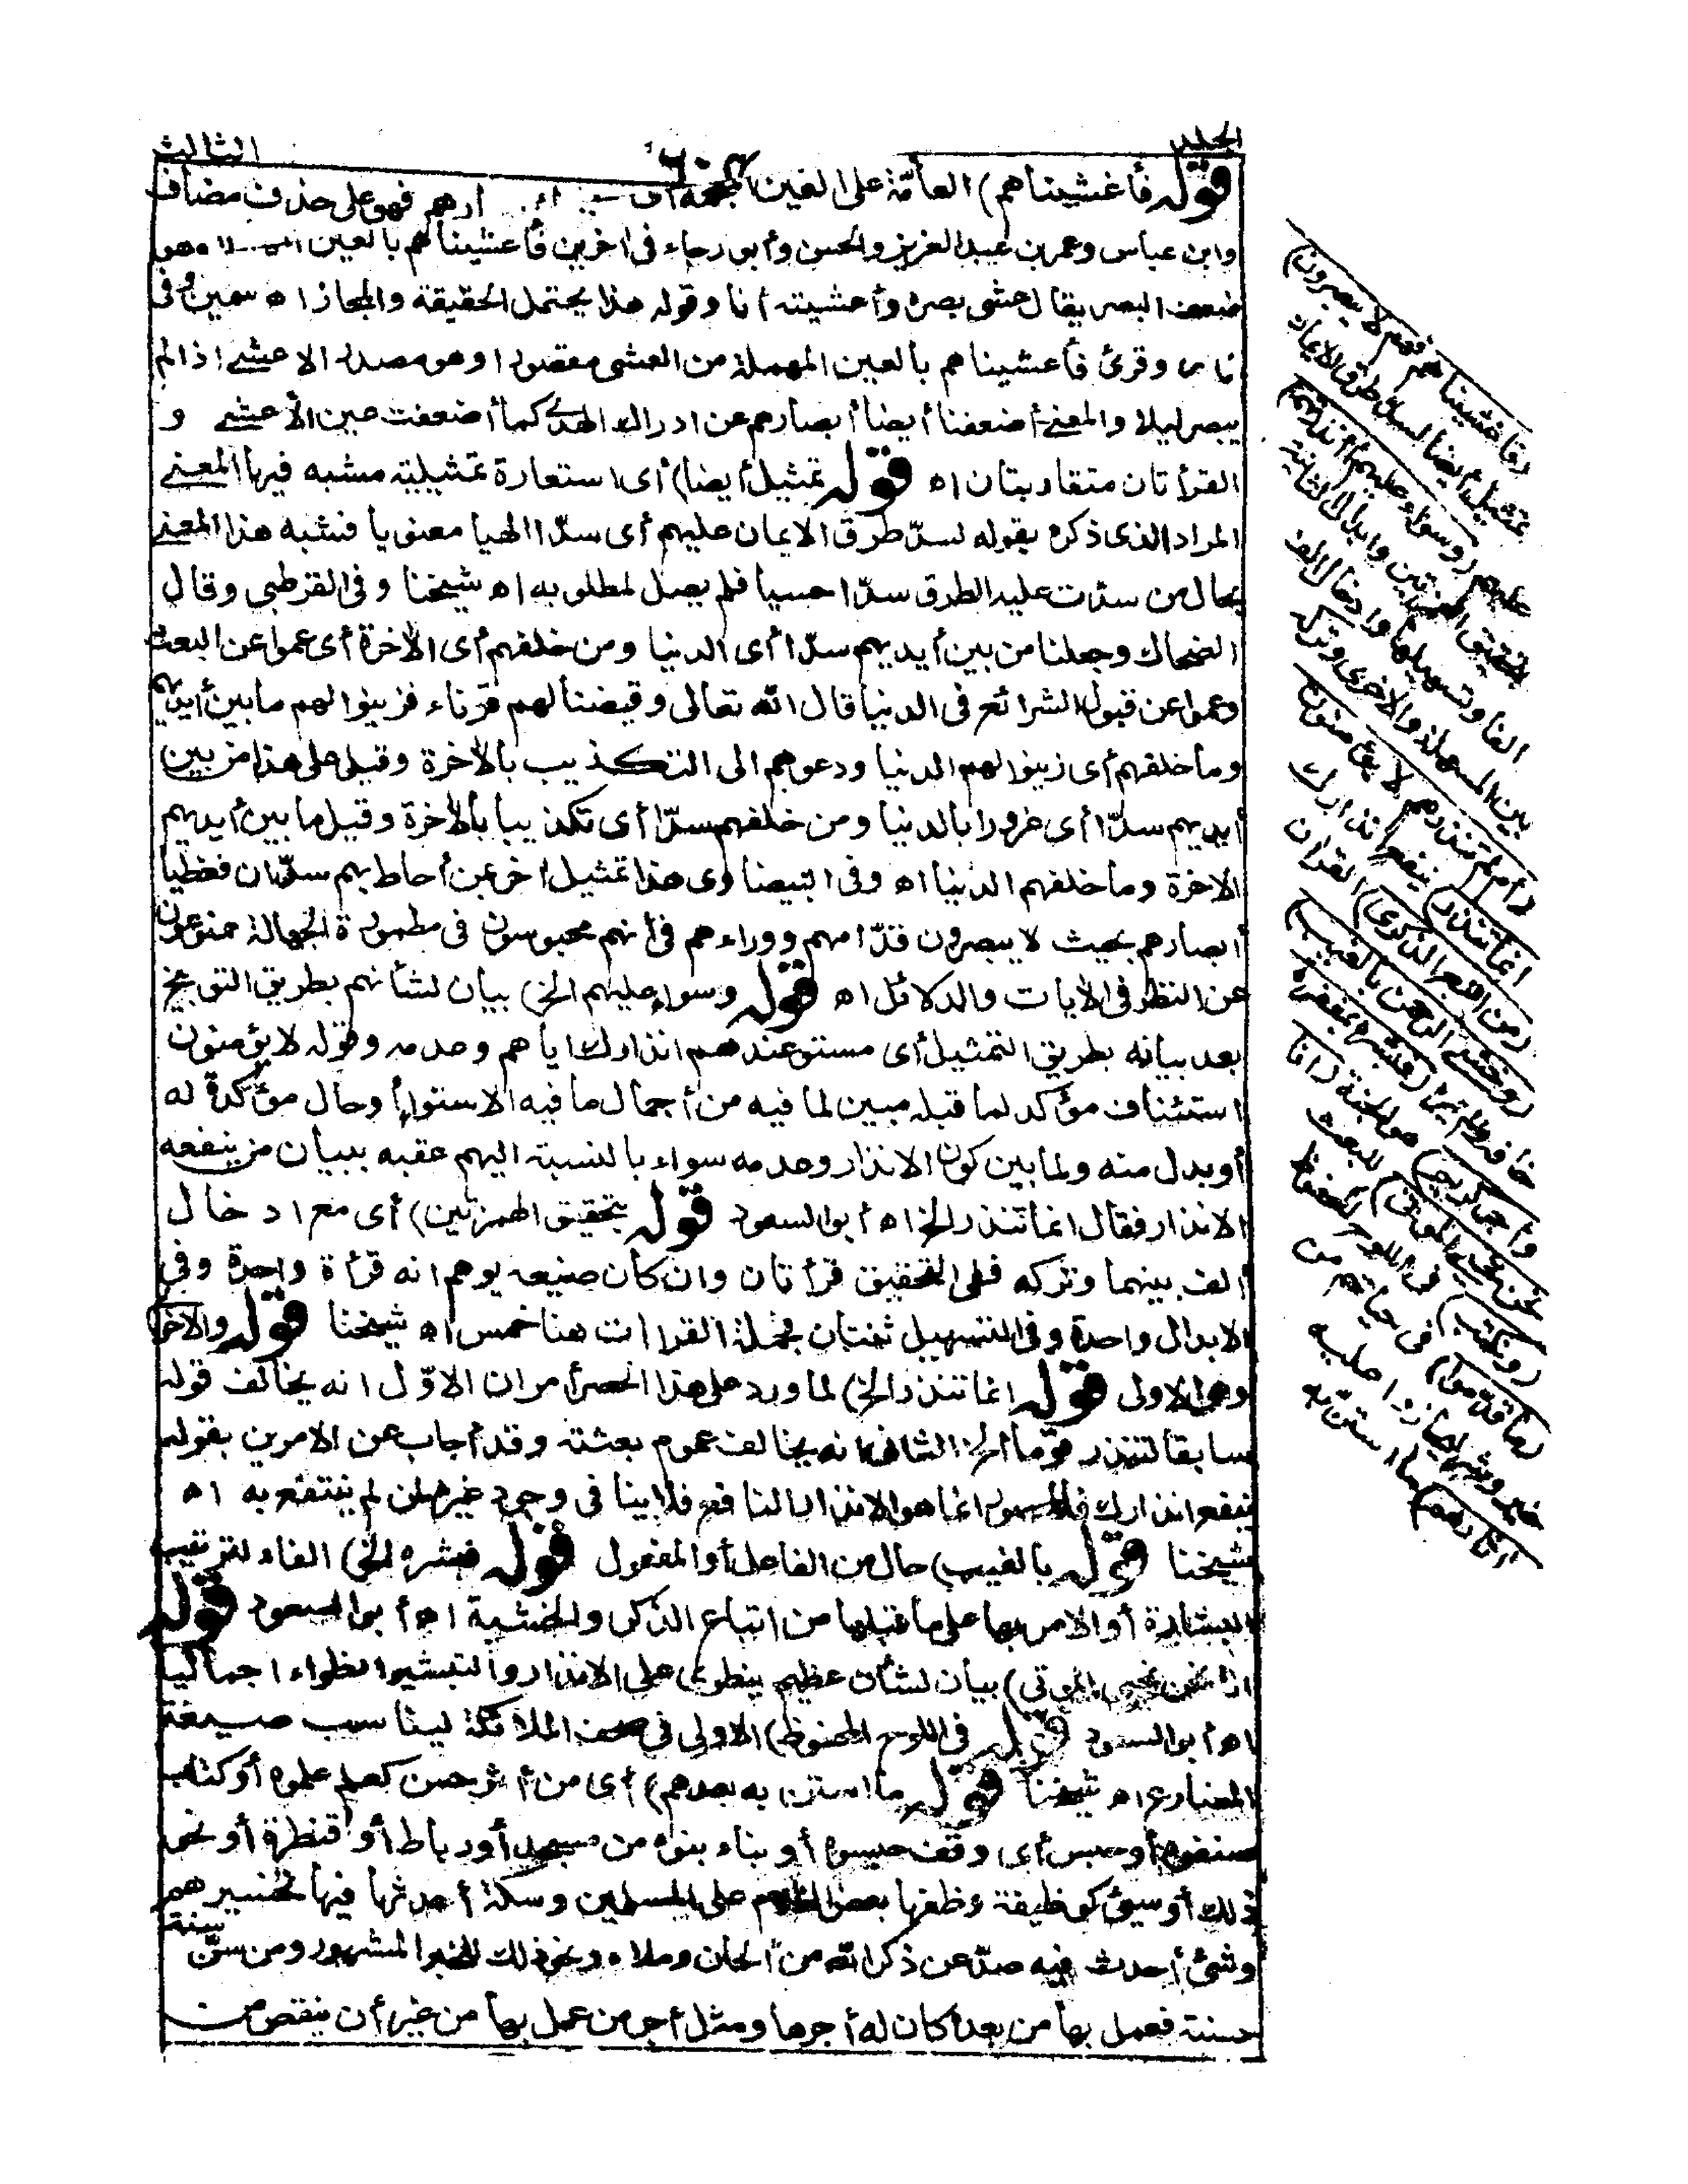 الجلد
الثالث
قوله فأغشيناهم) العامّة على الغين المعجمة أى أبصارهم فهو على حذف مضاف
وابن عباس وعمر بن عبد العزيز والحسن وأبو رجاء فى اخرين فأعشيناهم بالعين وهو
ضعف البصر يقال عشى بصره وأعشيته أنا وقوله هذا يحتمل الحقيقة والمجاز اه سمين وفى
وقرئ فأعشيناهم بالعين المهملة من العشى مقصورا وهو مصدر الاعشى اذا لم
يبصر ليلا والمعنى أضعفنا أيضا أبصارهم عن ادراك الهدى كما أضعفت عين الأعشى و
القرأتان متقاربتان اه قوله تمثيل أيضا) أى استعارة تمثيلية مشبه فيها المعنى
المراد الذى ذكره بقوله لسدّ طرق الايمان عليهم أى سدّا الهيا معنويا فشبه هذا المعنى
بحال من سدّت عليه الطرق سدّا حسيا فلم يصل لمطلوبه اه شيخنا وفى القرطبى وقال
الضحاك وجعلنا من بين أيديهم سدّا أى الدنيا ومن خلفهم أى الأخرة أى عموا عن البعث
وعموا عن قبول الشرائع فى الدنيا قال الله تعالى وقيضنا لهم قرناء فزينوا لهم ما بين أيديهم
وما خلفهم أى زينوا لهم الدنيا ودعوهم الى التكذيب بالأخرة وقيل على هذا من بين
أيديهم سدّا أى غرورا بالدنيا ومن خلفهم سدّا أى تكذيبا بالأخرة وقيل ما بين أيديهم
الاخرة وما خلفهم الدنيا اه وفى البيضاوى هذا تمثيل اخر عن أحاط بهم سدّان فغطيا
أبصارهم بحيث لا يبصرون قدّامهم ووراءهم فى أنهم محبوسون فى مطمورة الجهالة ممنوعون
عن النظر فى الايات والدلائل اه قوله وسواء عليهم الخ) بيان لشأنهم بطريق التوبيخ
بعد بيانه بطريق التمثيل أى مستو عندهم انذارك اياهم وعدمه وقوله لا يؤمنون
استئناف مؤكد لما قبله مبين لما فيه من أجمال ما فيه الاستواء أو حال مؤكدة له
أو بدل منه ولما بين كون الانذار وعدمه سواء بالنسبة اليهم عقبه ببيان من ينفعه
الانذار فقال انما تنذر الخ اه أبو السعود قوله بتحقيق الهمزتين) أى مع ادخال
ألف بينهما وتركه فلى التحقيق قرأتان وان كان صنيعه يوهم انه قرأة واحدة وفى
الابدال واحدة وفى التسهيل ثنتان فجملة القراات هنا خمس اه شيخنا قوله والاخرى
وهى الاولى قوله انما تنذر الخ) لما ورد على هذا الحصر أمران الاوّل انه يخالف قوله
سابقا لتنذر قوما الخ الثانى انه يخالف عموم بعثته وقد أجاب عن الامرين بقوله
ينفع انذارك فالمحصور انما هو الانذار النافع فلا ينافى وجود غيره لمن لم ينتفع به اه
شيخنا قوله بالغيب) حال من الفاعل أو المفعول قوله فبشره الخ) الفاء لترتيب
البشارة أو الامر بها على ما قبلها من اتباع الذكر والخشية اه أبو السعود قوله
انا نحن نحيى الموتى) بيان لشأن عظيم ينطوى على الانذار والتبشير انطواء اجماليا
اه أبو السعود قوله فى اللوح المحفوظ) الاولى فى صحف الملائكة ليناسب صيغة
المضارع اه شيخنا قوله ما استن به بعدهم) أى من أثر حسن كعلم علموه أو كتاب
صنفوه أو حبس أى وقف حبسوه أو بناء بنوه من مسجد أو رباط أو قنطرة أو نحو
ذلك أو سيئ كوظيفة وظفها بعض الظلام على المسلمين وسكة أحدثها فيها تخسيرهم
وشئ أحدث فيه صدّ عن ذكر الله من ألحان وملاه ونحو ذلك للخبر المشهور ومن سنّ سنة
حسنة فعمل بها من بعده كان له أجرها ومثل أجر من عمل بها من غير أن ينقص من
(فأغشيناهم فهم لا يبصرون)
تمثيل أيضا لسدّ طرق الايمان
عليهم (وسواء عليهم أأنذرتهم)
بتحقيق الهمزتين وابدال الثانية
الفا وتسهيلها وادخال الف
بين المسهلة والاخرى وتركه
(أم لم تنذرهم لا يؤمنون
انما تنذر) ينفع انذارك
(من اتبع الذكر) القران
(وخشى الرحمن بالغيب)
خافه ولم يره (فبشره بمغفرة
وأجر كريم) هو الجنة (انا
نحن نحيى الموتى) للبعث
(ونكتب) فى اللوح المحفوظ
(ما قدّموا) فى حياتهم من
خير وشر ليجازوا عليه
(واثارهم) ما استنّ به